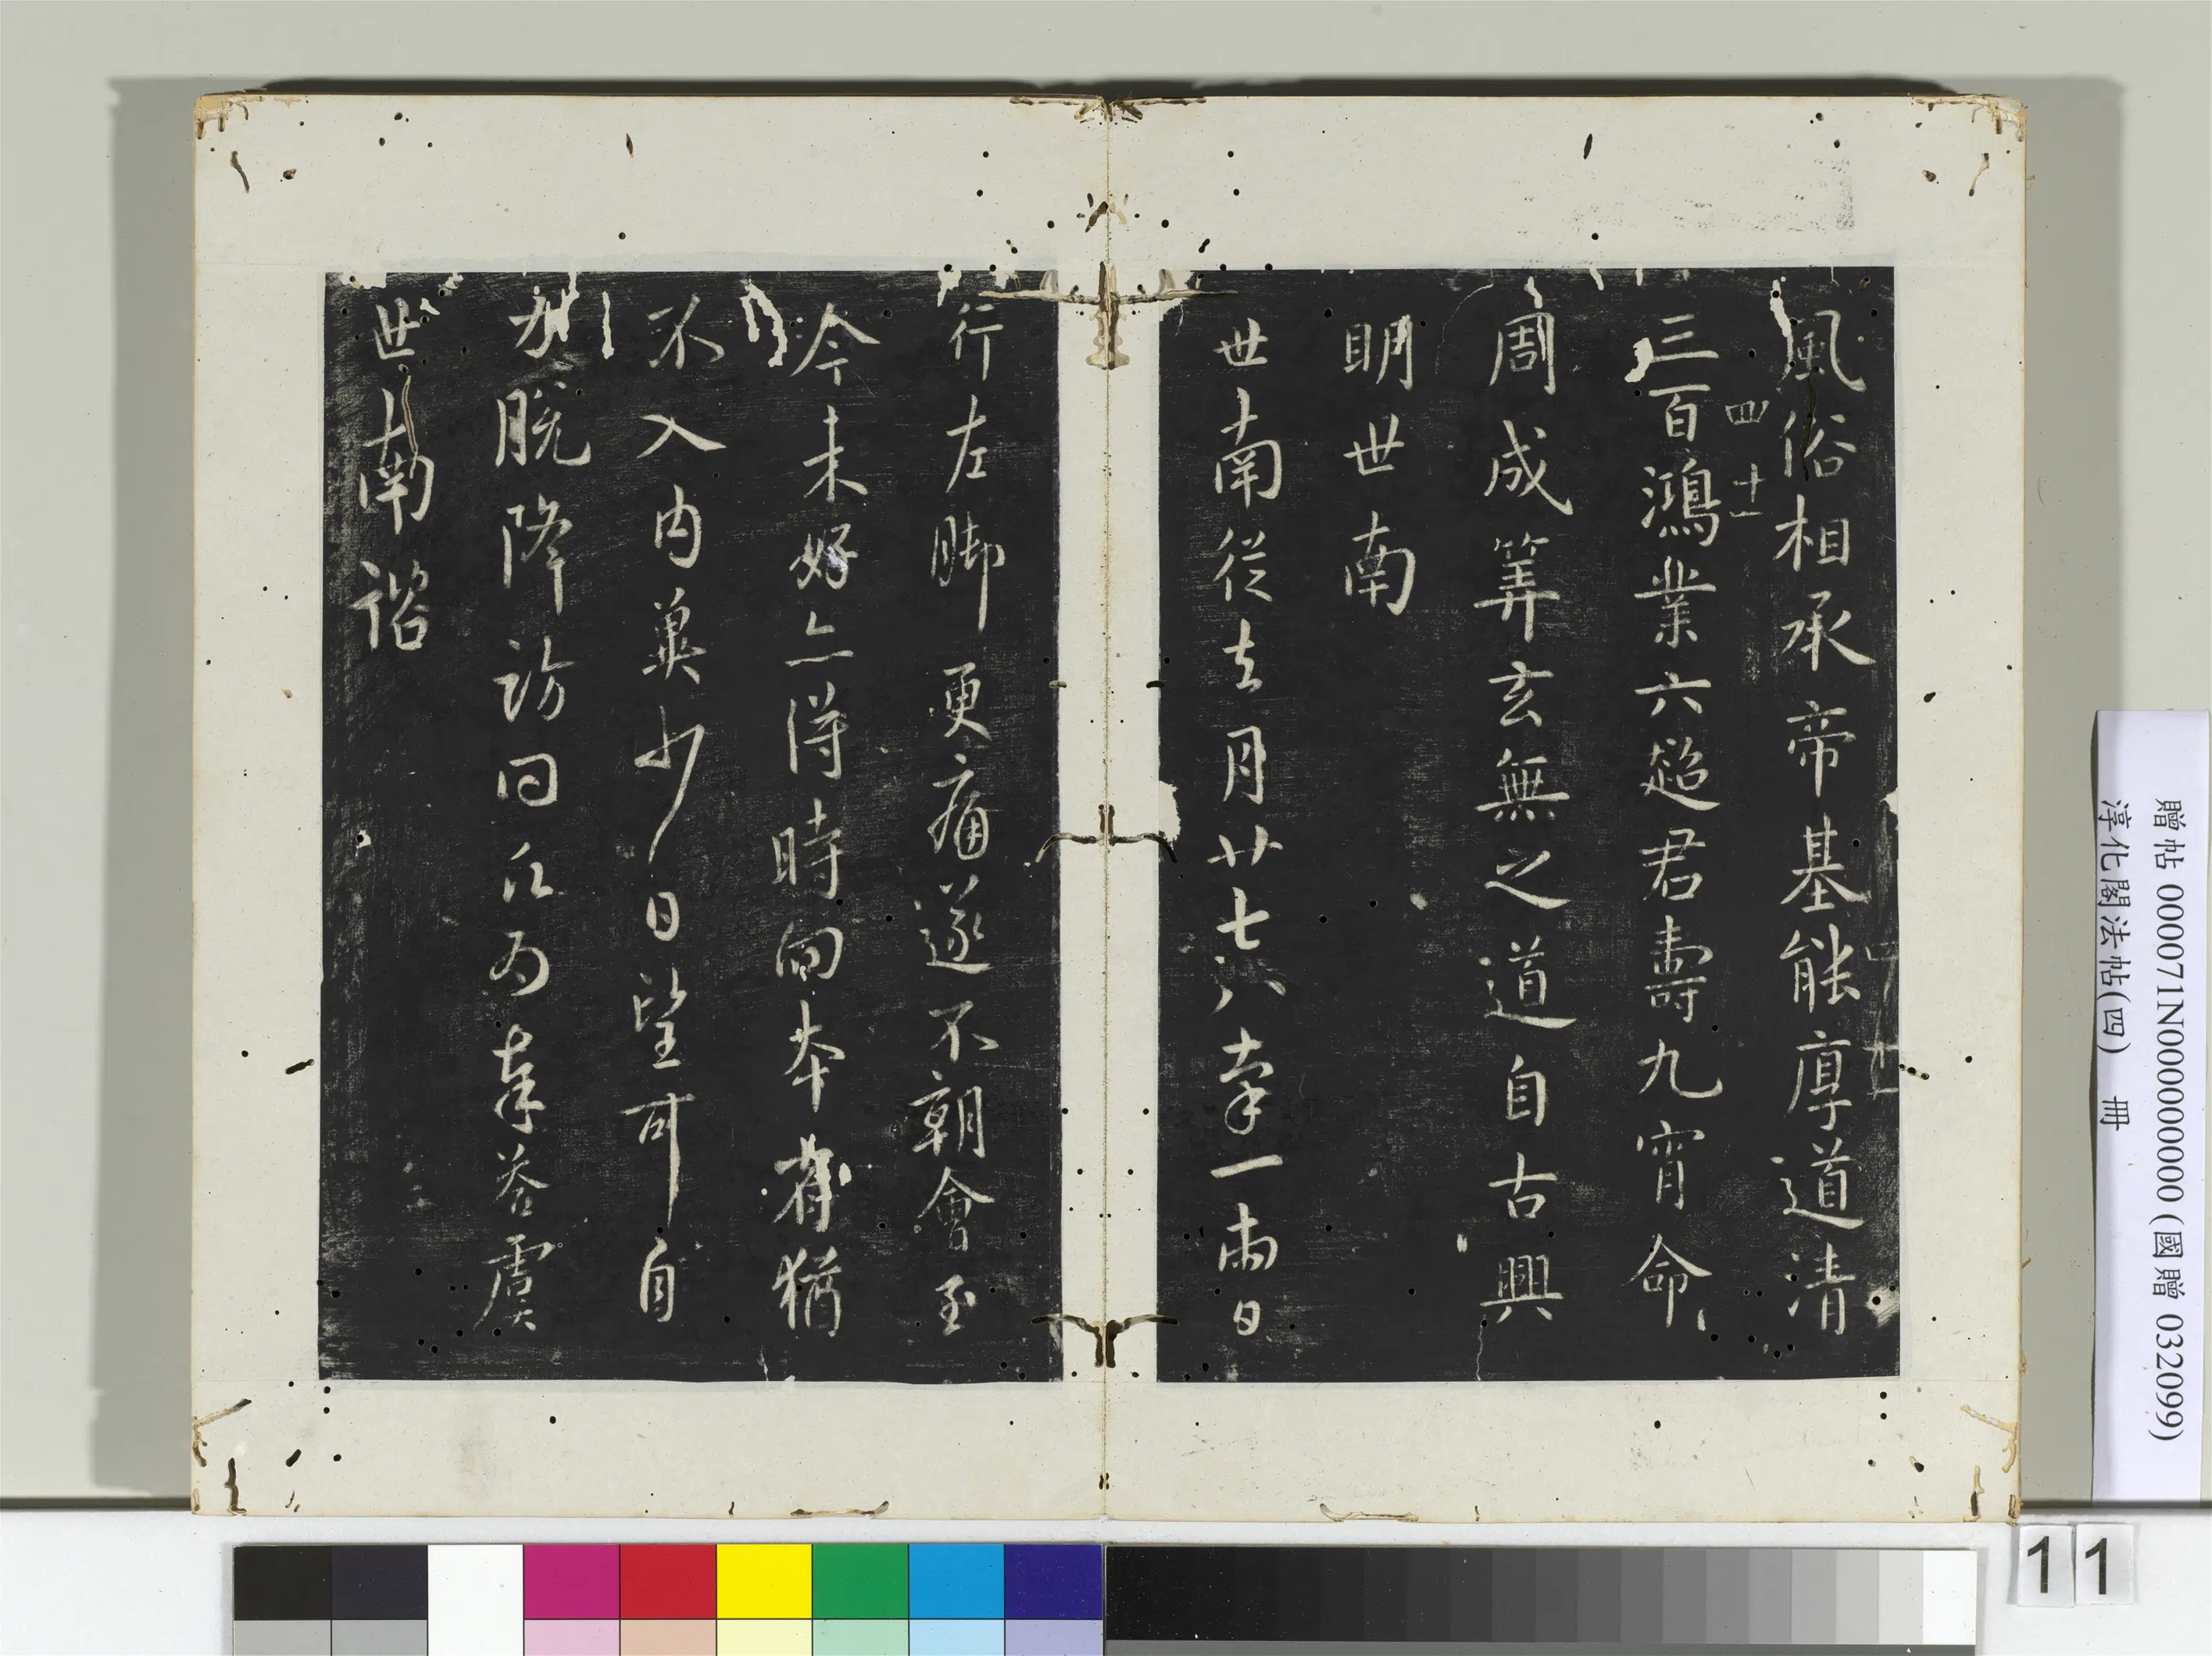 風俗相承帝基能厚道清
四十二
三百鴻業六超君壽九宵命
周成筭玄無之道自古興
明世南
世南從去月廿七八率一兩日
行左脚更痛遂不朝會至
今未好亦得時向本省猶
不入内冀少日望可自
力脱降訪問公為奉荅虞
世南諮
贈帖 000071N000000000 (國贈 032099)
淳化閣法帖(四) 冊
11